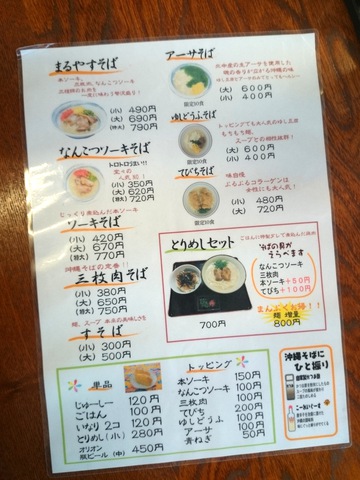 まるやすそば
本ソーキ、
三枚肉、なんこつソーキ
(小) 490円
(大) 690円
(特大) 790円
なんこつソーキそば
トロトロうまい!!
(小) 350円
(大) 620円
(特大) 720円
じっくり煮込んだ本ソーキ
ソーキそば
(小) 420円
(大) 670円
(特大) 770円
沖縄そばの定番!!
三枚肉そば
(小) 380円
(大) 650円
(特大) 750円
麺、スープ 本来の美味しさを
すそば
(小) 300円
(大) 500円
アーサそば
限定10食
(大) 600円
(小) 400円
ゆしどうふそば
トッピングでも大人気のゆし豆腐
もちもち麺、
スープとの相性抜群!
限定10食
(大) 600円
(小) 400円
てびちそば
味自慢
ぷるぷるコラーゲンは
女性にも大人気!
限定10食
(小) 480円
(大) 720円
とりめしセット
700円
そばの具が
えらべます
なんこつソーキ
三枚肉
本ソーキ+50円
てびち+100円
まんぷくお得!!
麺 増量
800円
単品
じゅーしー 120円
ごはん 100円
いなり 2コ 120円
とりめし(小) 280円
オリオン
瓶ビール (中) 450円
トッピング
本ソーキ 150円
なんこつソーキ 100円
三枚肉 100円
てびち 200円
ゆしどうふ 100円
アーサ 100円
青ねぎ 50円
沖縄そばに
ひと振り
こーれーぐーす